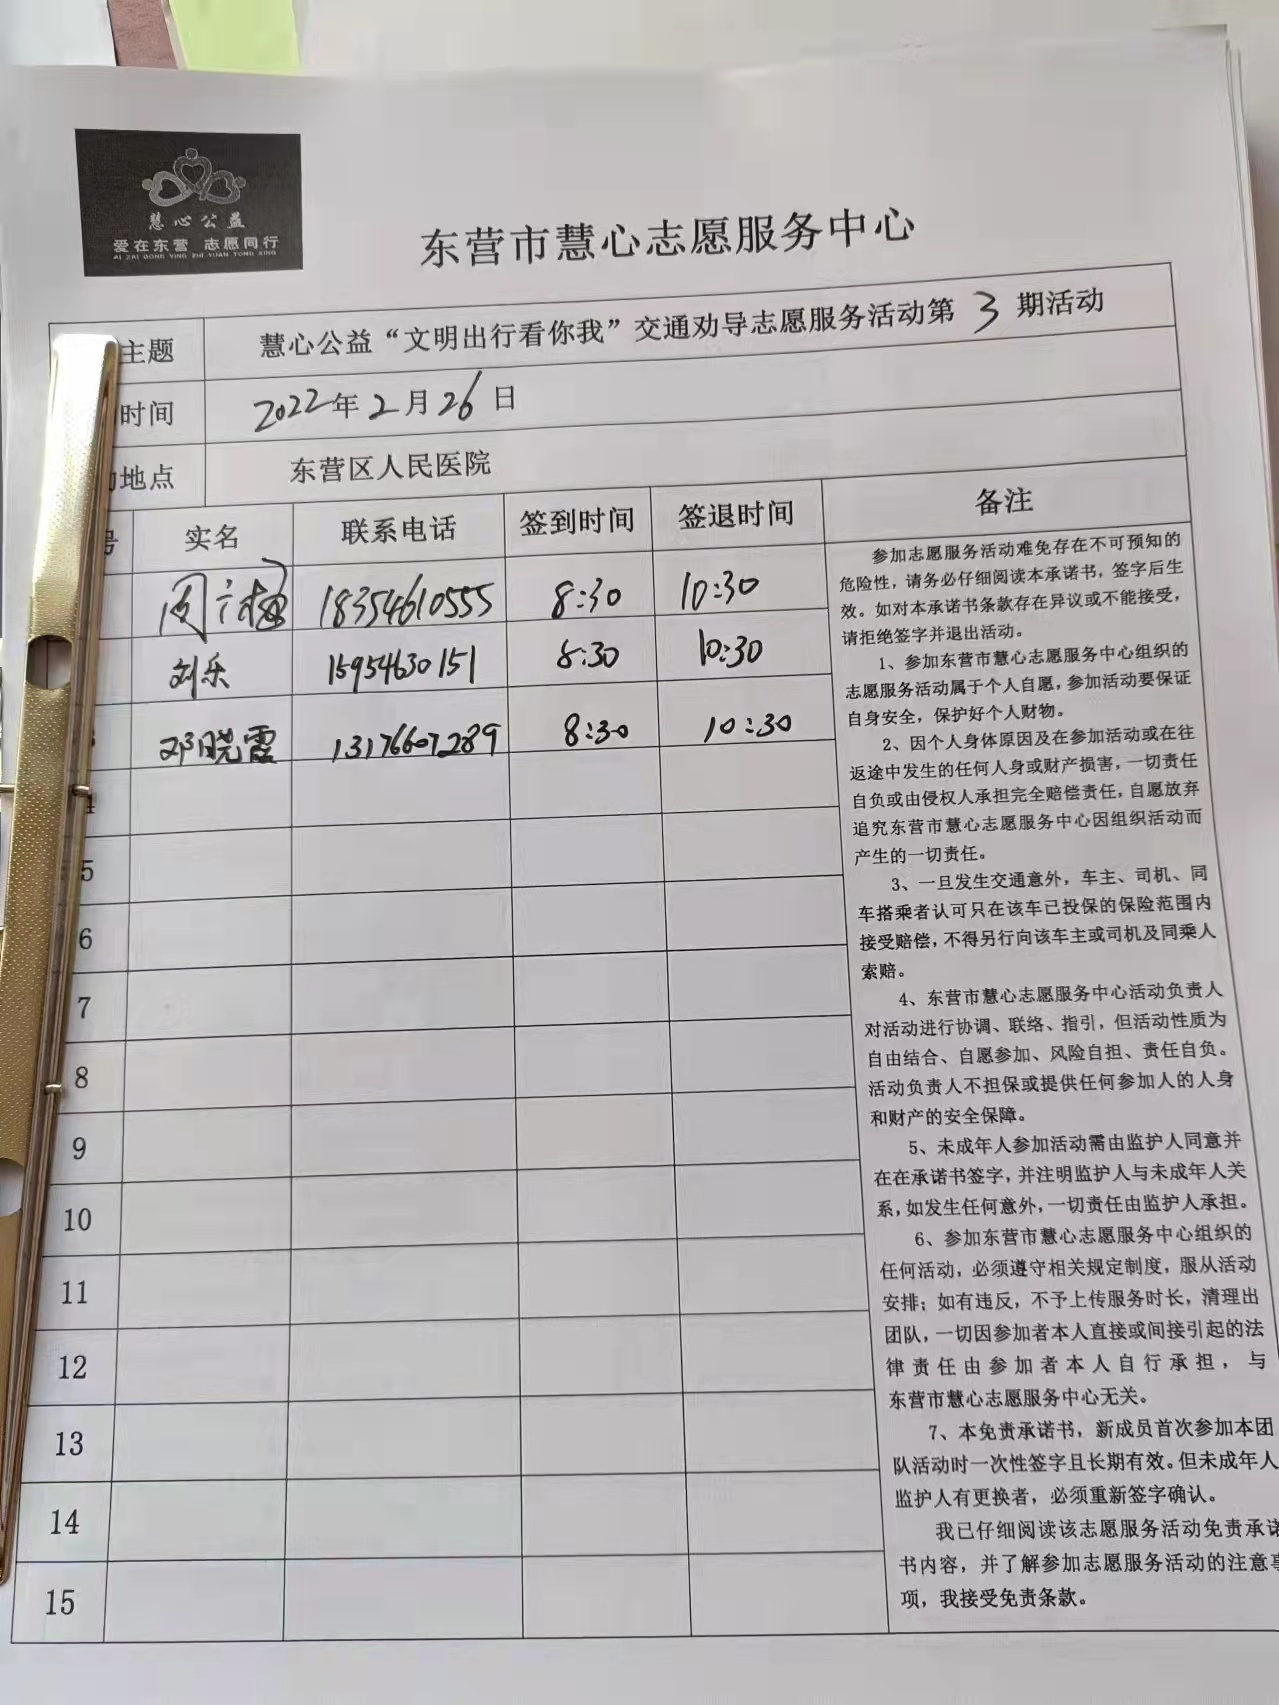 慧心公益
爱在东营 志愿同行
AI ZAI DONG YING ZHI YUAN TONG XING
东营市慧心志愿服务中心
主题 慧心公益“文明出行看你我”交通劝导志愿服务活动第 3 期活动
时间 2022年2月26日
地点 东营区人民医院
号 实名 联系电话 签到时间 签退时间 备注
周 梅 18354610555 8:30 10:30
刘乐 15954630151 8:30 10:30
3 邓晓霞 13176607289 8:30 10:30
4
5
6
7
8
9
10
11
12
13
14
15
参加志愿服务活动难免存在不可预知的
危险性，请务必仔细阅读本承诺书，签字后生
效。如对本承诺书条款存在异议或不能接受，
请拒绝签字并退出活动。
1、参加东营市慧心志愿服务中心组织的
志愿服务活动属于个人自愿，参加活动要保证
自身安全，保护好个人财物。
2、因个人身体原因及在参加活动或在往
返途中发生的任何人身或财产损害，一切责任
自负或由侵权人承担完全赔偿责任，自愿放弃
追究东营市慧心志愿服务中心因组织活动而
产生的一切责任。
3、一旦发生交通意外，车主、司机、同
车搭乘者认可只在该车已投保的保险范围内
接受赔偿，不得另行向该车主或司机及同乘人
索赔。
4、东营市慧心志愿服务中心活动负责人
对活动进行协调、联络、指引，但活动性质为
自由结合、自愿参加、风险自担、责任自负。
活动负责人不担保或提供任何参加人的人身
和财产的安全保障。
5、未成年人参加活动需由监护人同意并
在在承诺书签字，并注明监护人与未成年人关
系，如发生任何意外，一切责任由监护人承担。
6、参加东营市慧心志愿服务中心组织的
任何活动，必须遵守相关规定制度，服从活动
安排；如有违反，不予上传服务时长，清理出
团队，一切因参加者本人直接或间接引起的法
律责任由参加者本人自行承担，与
东营市慧心志愿服务中心无关。
7、本免责承诺书，新成员首次参加本团
队活动时一次性签字且长期有效。但未成年人
监护人有更换者，必须重新签字确认。
我已仔细阅读该志愿服务活动免责承诺
书内容，并了解参加志愿服务活动的注意事
项，我接受免责条款。